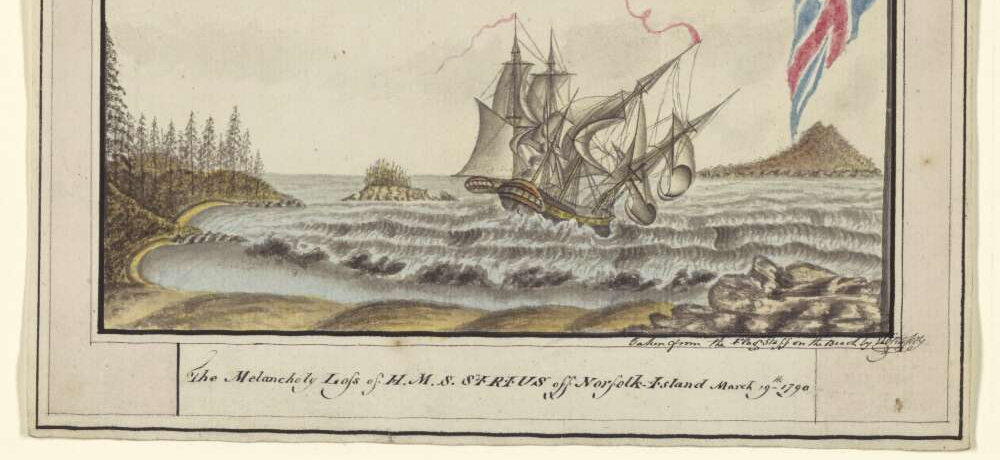 taken from the Flag-Staff on the Beach by
The Melancholy Loſs of H.M.S. SIRIUS off Norfolk-Island March 19th 1790